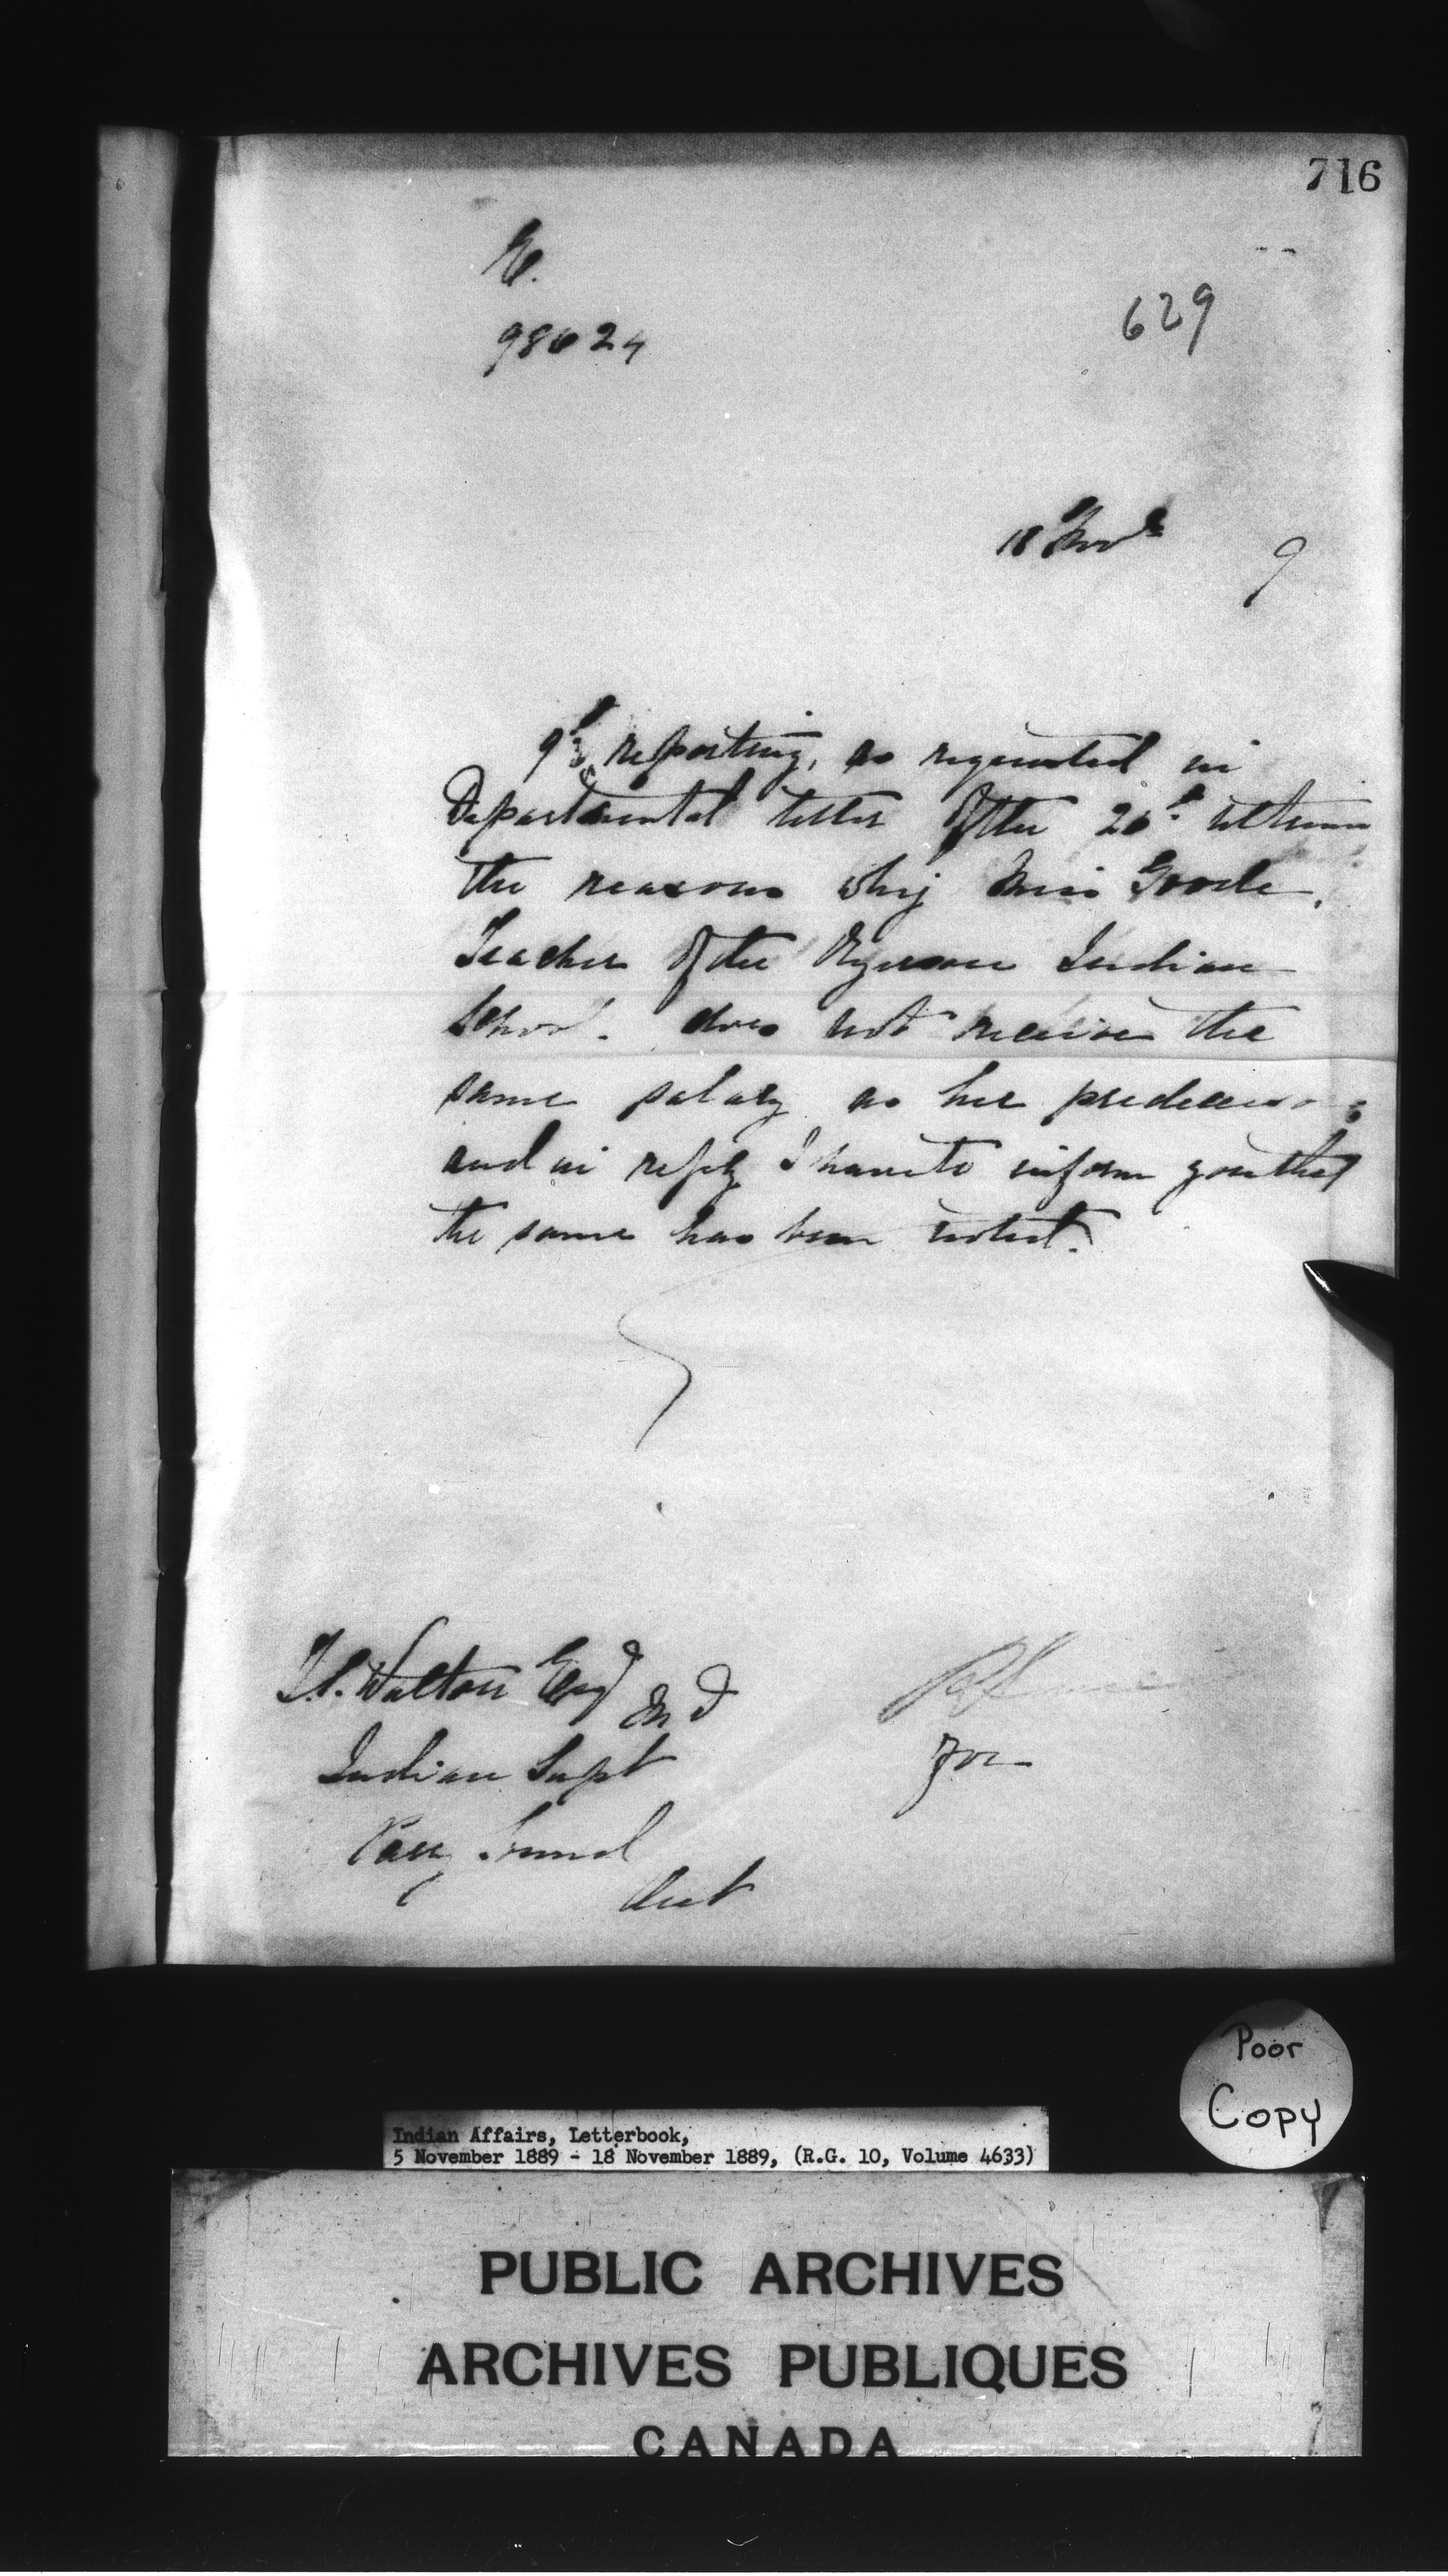 716
E.
98624
629
18 Novr
9
9th reporting, as requested in
Departmental letter of the 26th ultimo
the reasons why Miss Goode,
Teacher of the Ryerson Indian
School. does not receive the
same salary as her predecessor;
and in reply I have to inform you that
the same has been noted.
T.S. Walton Esqr M D
Indian Supt
Parry Sound
Ont
For
Poor
Copy
Indian Affairs, Letterbook,
5 November 1889 - 18 November 1889, (R.G. 10, Volume 4633)
PUBLIC ARCHIVES
ARCHIVES PUBLIQUES
CANADA